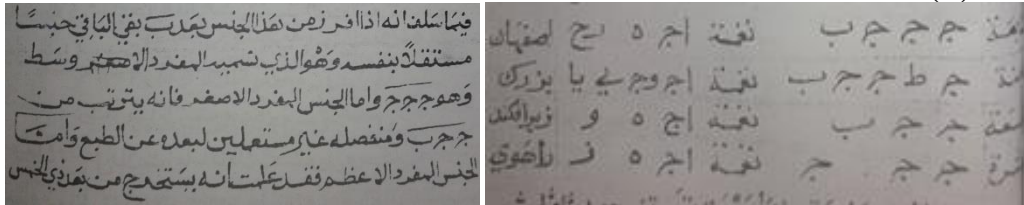 فيما سلف انه اذا افرز من هذا الجنس بعد ب بقى الباقي جنسا
مستقلا بنفسه وهو الذي نسميه المفرد الا وسط
وهو ج ج ج واما الجنس المفرد الاصغر فانه يترتب من
ج ج ب ومنفصله غير مستعملين لبعده عن الطبع واما
الجنس المفرد الاعظم فقد علمت انه يستخرج من بعد ذي الخمس
ج ج ج ب نغمة ا ج ه ح اصفهان
ج ط ج ج ب نغمة ا ج و ح ي يا بزرك
ج ج ب نغمة ا ج ه و زيرافكند
ج ج ج نغمة ا ج ه ز راهوي